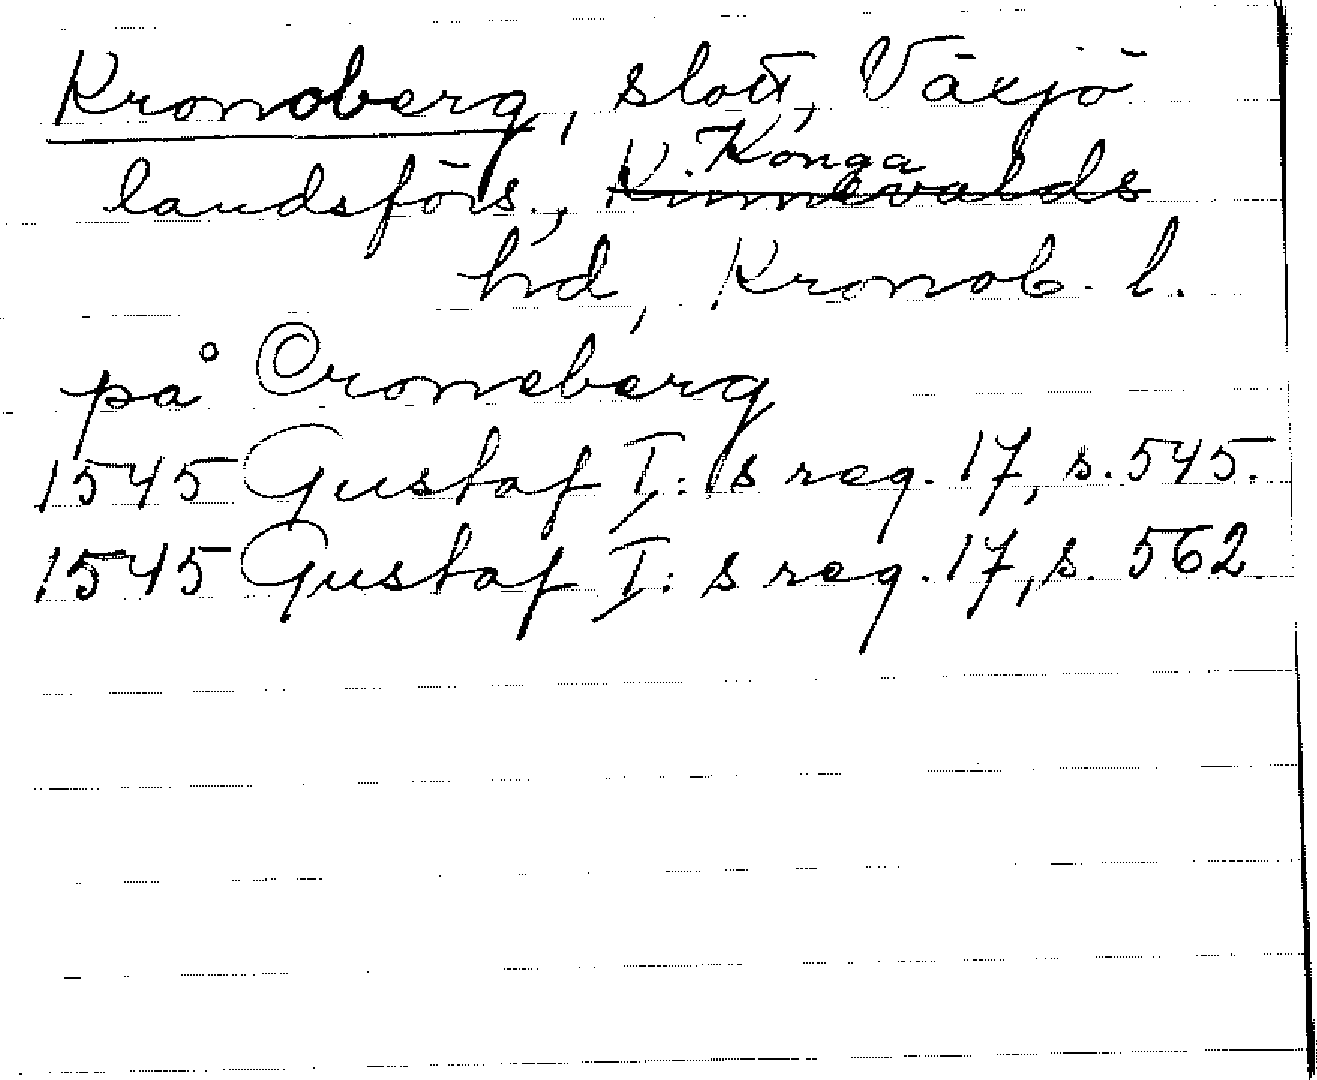 Kronoberg, slott, Växjö
landsförs., Konga Kinnevalds
hd, Kronob. l.
på Croneberg
1545 Gustaf I:s reg. 17, s. 545.
1545 Gustaf I:s reg. 17, s. 562.